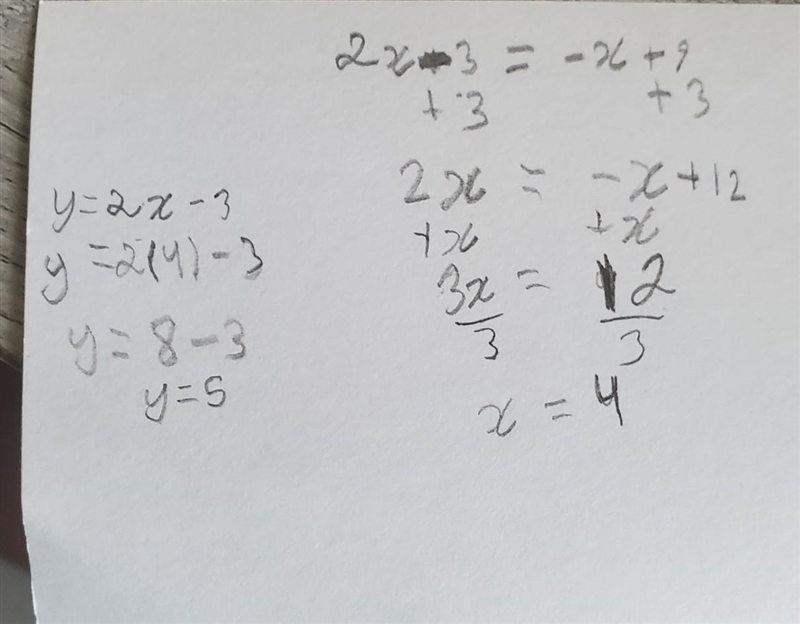 2x-3 = -x+9
+3 +3
2x = -x+12
+x +x
3x = 12
3 3
x = 4
y=2x-3
y=2(4)-3
y=8-3
y=5